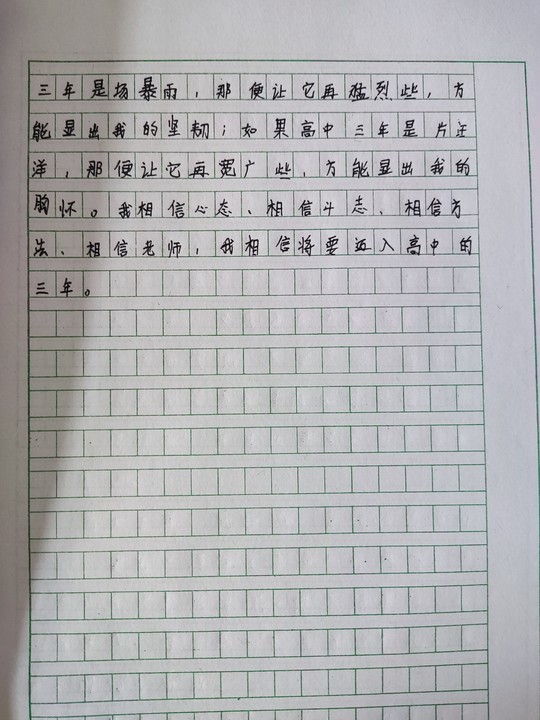 三年是场暴雨，那便让它再猛烈些，方
能显出我的坚韧；如果高中三年是片汪
洋，那便让它再宽广些，方能显出我的
胸怀。我相信心态、相信斗志、相信方
法、相信老师，我相信将要迈入高中的
三年。